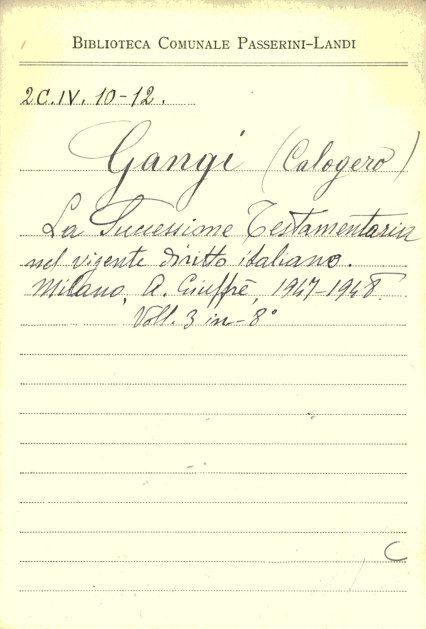 BIBLIOTECA COMUNALE PASSERINI-LANDI
2C.IV. 10-12.
Gangi (Calogero)
La Successione Testamentaria
nel vigente diritto italiano.
Milano, A. Giuffrè, 1947-1948
Voll. 3 in-8°
C